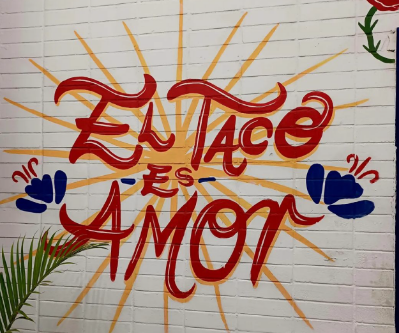 El Taco
es
Amor